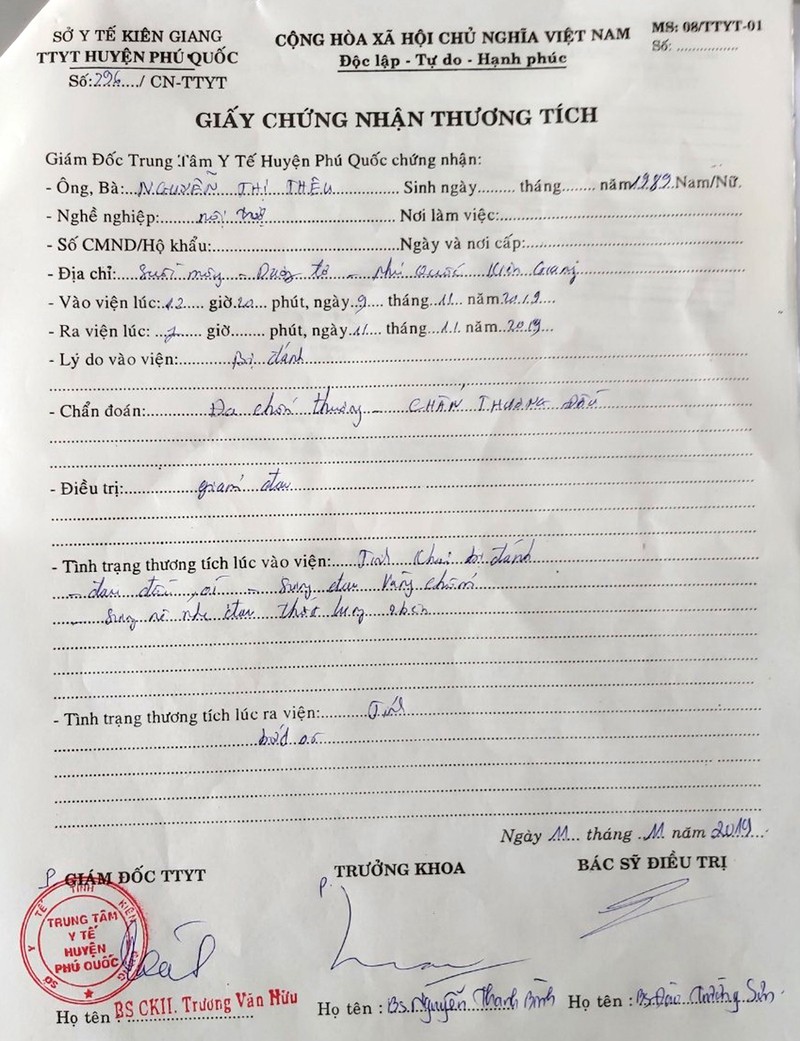 SỞ Y TẾ KIÊN GIANG
TTYT HUYỆN PHÚ QUỐC
Số:296..../ CN-TTYT
CỘNG HÒA XÃ HỘI CHỦ NGHĨA VIỆT NAM
Độc lập - Tự do - Hạnh phúc
MS: 08/TTYT-01
Số: ................
GIẤY CHỨNG NHẬN THƯƠNG TÍCH
Giám Đốc Trung Tâm Y Tế Huyện Phú Quốc chứng nhận:
- Ông, Bà: NGUYỄN THỊ THÊU Sinh ngày......... tháng........ năm 1989 Nam/Nữ.
- Nghề nghiệp: nội trợ Nơi làm việc:
- Số CMND/Hộ khẩu: Ngày và nơi cấp:
- Địa chỉ: Suối mây - Dương tơ - Phú Quốc Kiên Giang
- Vào viện lúc: 12 giờ 20 phút, ngày 9 tháng 11 năm 2019
- Ra viện lúc: 7 giờ........ phút, ngày 11 tháng 11 năm 2019
- Lý do vào viện: Bị đánh
- Chẩn đoán: Đa chấn thương - CHẤN THƯƠNG ĐẦU
- Điều trị: giảm đau
- Tình trạng thương tích lúc vào viện: Tỉnh Khai bị đánh
- đau đầu, - Sưng đau vùng
- Sưng nề nhẹ đau thắt lưng
- Tình trạng thương tích lúc ra viện: Tỉnh
Ngày 11 tháng 11 năm 2019
P. GIÁM ĐỐC TTYT
P. TRƯỞNG KHOA
BÁC SỸ ĐIỀU TRỊ
SỞ Y TẾ TỈNH KIÊN GIANG
TRUNG TÂM
Y TẾ
HUYỆN
PHÚ QUỐC
Họ tên : BS CKII. Trương Văn Hữu
Họ tên : Bs. Nguyễn Thanh Bình
Họ tên : Bs. Đào Trường Sơn